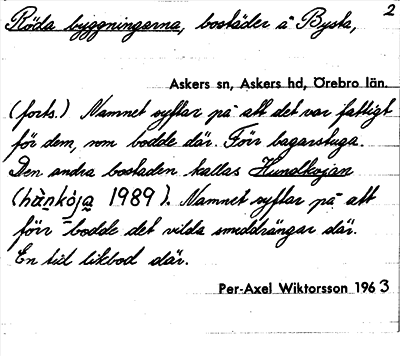 2
Röda byggningarna, bostäder å Bysta,
Askers sn, Askers hd, Örebro län.
(forts.) Namnet syftar på att det var fattigt
för dem, som bodde där. Förr bagarstuga.
Den andra bostaden kallas Hundkojan
(hànkója 1989). Namnet syftar på att
förr bodde det vilda smeddrängar där.
En tid likbod där.
Per-Axel Wiktorsson 1963